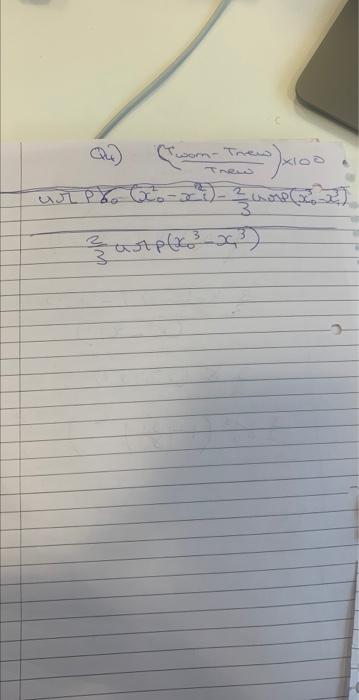 Q4) (Tworn - Tnew / Tnew) × 100
uπ P r₀ (x₀² - xᵢ²) - 2/3 uπp(x₀³ - xᵢ³)
2/3 uπp(x₀³ - xᵢ³)